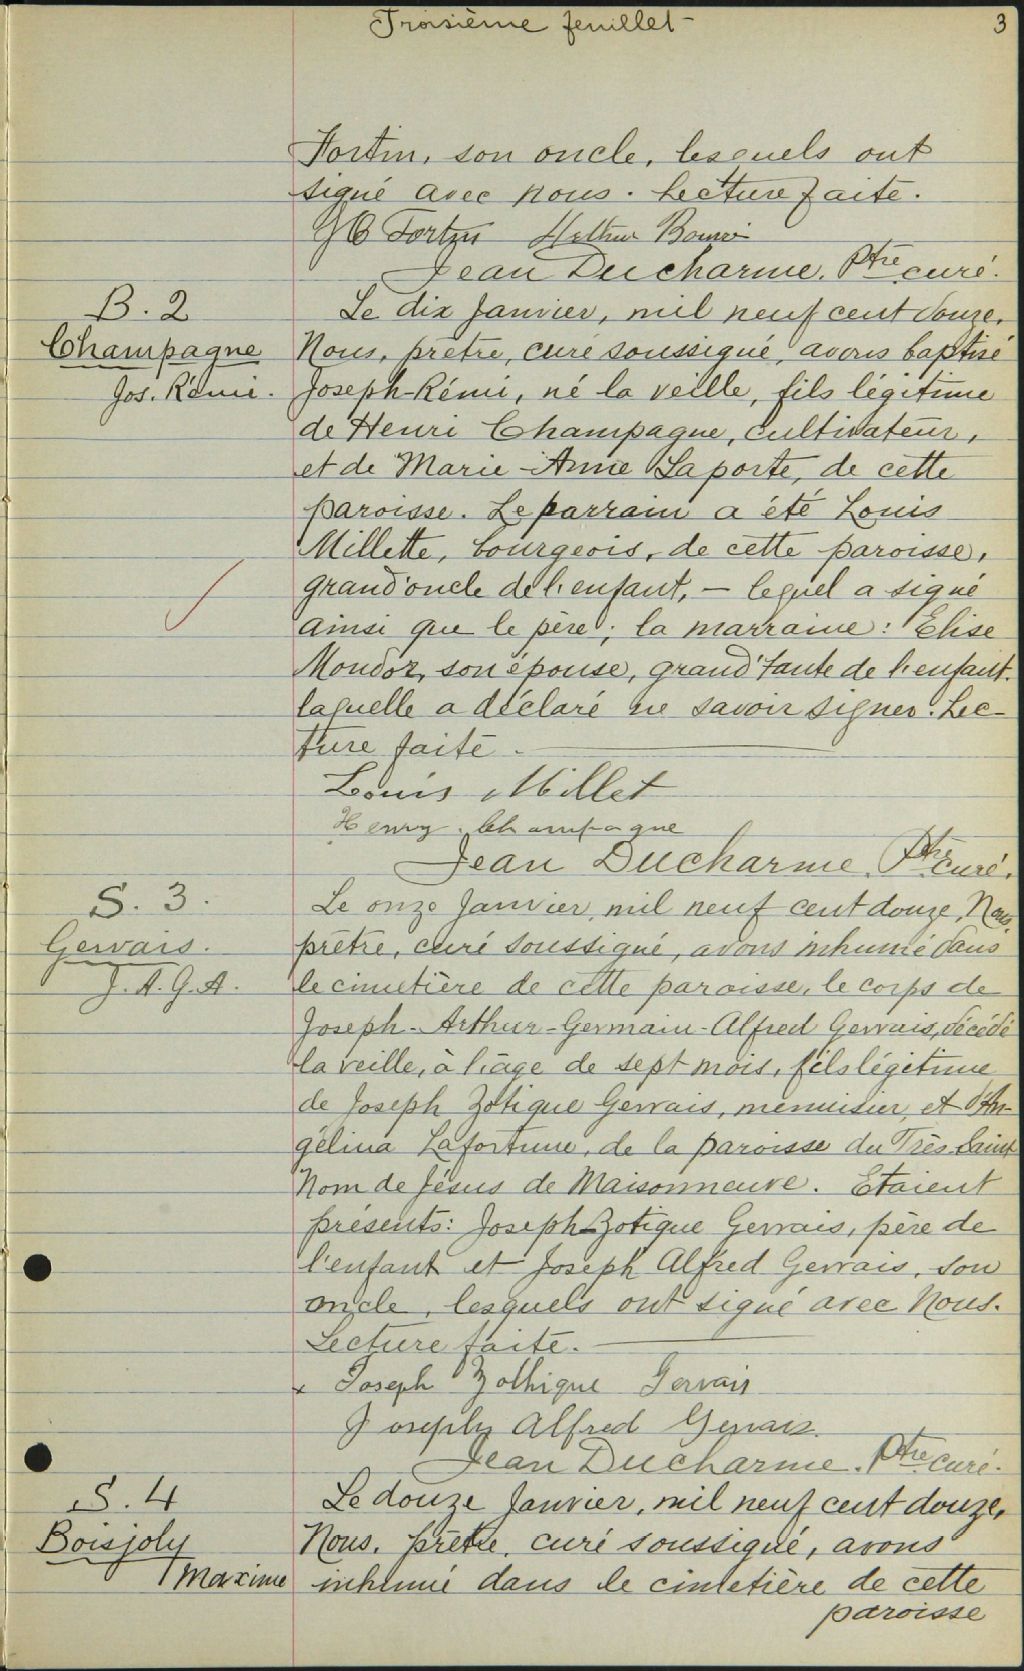 Troisième feuillet - 3
Fortin, son oncle, lesquels ont
signé avec nous. Lecture faite.
Fortin Arthur
Jean Ducharme. Ptre curé.
B. 2
Champagne
Jos. Rémi.
Le dix Janvier, mil neuf cent douze,
Nous, prêtre, curé soussigné, avons baptisé
Joseph-Rémi, né la veille, fils légitime
de Henri Champagne, cultivateur,
et de Marie-Anne Laporte, de cette
paroisse. Le parrain a été Louis
Millette, bourgeois, de cette paroisse,
grand'oncle de l'enfant, — lequel a signé
ainsi que le père; la marraine: Elise
Mondor, son épouse, grand'tante de l'enfant.
laquelle a déclaré ne savoir signer. Lec-
ture faite.
Louis Millet
Henry Champagne
Jean Ducharme. Ptre curé.
S. 3.
Gervais.
J. A. G. A.
Le onze Janvier, mil neuf cent douze, Nous,
prêtre, curé soussigné, avons inhumé dans
le cimetière de cette paroisse, le corps de
Joseph-Arthur-Germain-Alfred Gervais, décédé
la veille, à l'âge de sept mois, fils légitime
de Joseph Zotique Gervais, menuisier, et d'An-
gélina Lafortune, de la paroisse du Très Saint
Nom de Jésus de Maisonneuve. Etaient
présents: Joseph-Zotique Gervais, père de
l'enfant et Joseph Alfred Gervais, son
oncle, lesquels ont signé avec Nous.
Lecture faite.
x Joseph Zothique Gervais
Joseph Alfred Gervais.
Jean Ducharme. Ptre curé.
S. 4
Boisjoly
Maxime
Le douze Janvier, mil neuf cent douze,
Nous, prêtre, curé soussigné, avons
inhumé dans le cimetière de cette
paroisse